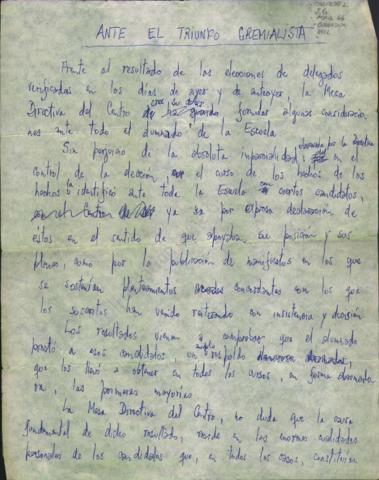 ANTE EL TRIUNFO GREMIALISTA
Ante al resultado de las elecciones de delegados
verificadas en los días de ayer y de anteayer la Mesa
Directiva del Centro cree su deber formular algunas consideracio
nes ante todo el alumnado de la Escuela.
Sin perjuicio de la absoluta imparcialidad observada por la Directiva en el
control de la elección, el curso de los hechos de los
hechos la identificó ante toda la Escuela con ciertos candidatos,
ya sea por expresa declaración de
éstos en el sentido de que apoyaban su posición y sus
planes, como por la publicación de manifiestos en los que
se sostenían planteamientos concordantes con los que
los suscritos han venido reiterando con insistencia y decisión
Los resultados vienen a comprobar que el alumnado
prestó a esos candidatos, un amplio respaldo
que los llevó a obtener en todos los cursos, en forma abrumado
ra, las primeras mayorías
La Mesa Directiva del Centro, no duda que la causa
fundamental de dicho resultado, reside en las enormes cualidades
personales de los candidatos que, en todos los casos, constituían